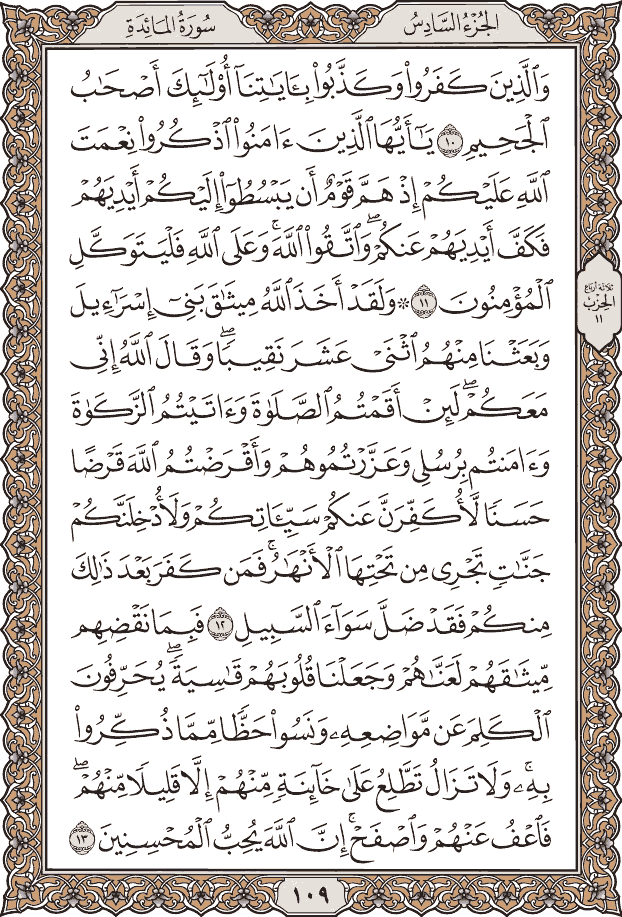 الجُزْءُ السَّادِسُ
سُورَةُ المَائِدَةِ
وَٱلَّذِينَ كَفَرُواْ وَكَذَّبُواْ بِـَٔايَٰتِنَآ أُوْلَٰٓئِكَ أَصْحَٰبُ
ٱلْجَحِيمِ ١٠ يَٰٓأَيُّهَا ٱلَّذِينَ ءَامَنُواْ ٱذْكُرُواْ نِعْمَتَ
ٱللَّهِ عَلَيْكُمْ إِذْ هَمَّ قَوْمٌ أَن يَبْسُطُوٓاْ إِلَيْكُمْ أَيْدِيَهُمْ
فَكَفَّ أَيْدِيَهُمْ عَنكُمْۖ وَٱتَّقُواْ ٱللَّهَۚ وَعَلَى ٱللَّهِ فَلْيَتَوَكَّلِ
ٱلْمُؤْمِنُونَ ١١ ۞ وَلَقَدْ أَخَذَ ٱللَّهُ مِيثَٰقَ بَنِىٓ إِسْرَٰٓءِيلَ
وَبَعَثْنَا مِنْهُمُ ٱثْنَىْ عَشَرَ نَقِيبًاۖ وَقَالَ ٱللَّهُ إِنِّى
مَعَكُمْۖ لَئِنْ أَقَمْتُمُ ٱلصَّلَوٰةَ وَءَاتَيْتُمُ ٱلزَّكَوٰةَ
وَءَامَنتُم بِرُسُلِى وَعَزَّرْتُمُوهُمْ وَأَقْرَضْتُمُ ٱللَّهَ قَرْضًا
حَسَنًا لَّأُكَفِّرَنَّ عَنكُمْ سَيِّـَٔاتِكُمْ وَلَأُدْخِلَنَّكُمْ
جَنَّٰتٍ تَجْرِى مِن تَحْتِهَا ٱلْأَنْهَٰرُۚ فَمَن كَفَرَ بَعْدَ ذَٰلِكَ
مِنكُمْ فَقَدْ ضَلَّ سَوَآءَ ٱلسَّبِيلِ ١٢ فَبِمَا نَقْضِهِم
مِّيثَٰقَهُمْ لَعَنَّٰهُمْ وَجَعَلْنَا قُلُوبَهُمْ قَٰسِيَةًۖ يُحَرِّفُونَ
ٱلْكَلِمَ عَن مَّوَاضِعِهِۦ وَنَسُواْ حَظًّا مِّمَّا ذُكِّرُواْ
بِهِۦۚ وَلَا تَزَالُ تَطَّلِعُ عَلَىٰ خَآئِنَةٍ مِّنْهُمْ إِلَّا قَلِيلًا مِّنْهُمْۖ
فَٱعْفُ عَنْهُمْ وَٱصْفَحْۚ إِنَّ ٱللَّهَ يُحِبُّ ٱلْمُحْسِنِينَ ١٣
ثلاثة أرباع
الحزب
١١
١٠٩